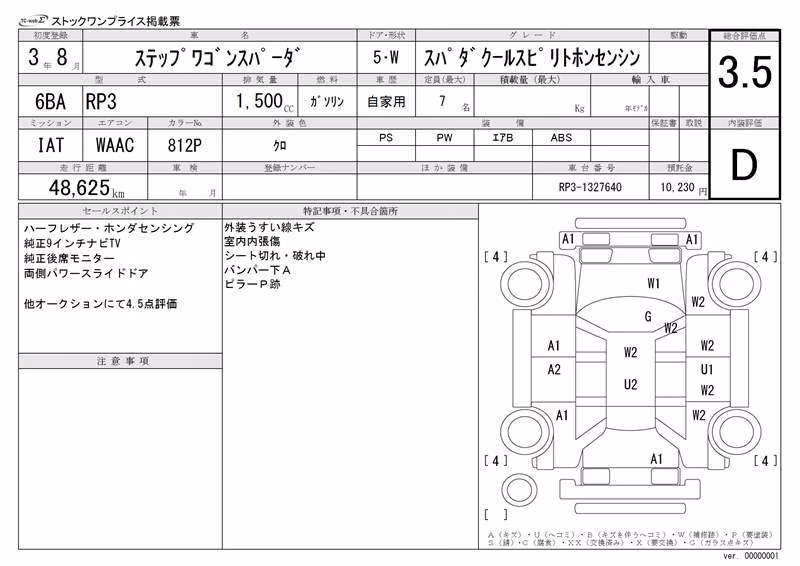 TC-webΣ ストックワンプライス掲載票
初度登録 車 名 ドア・形状 グ レ ー ド 駆動 総合評価点
3年 8月 ステップワゴンスパーダ 5・W スパダクールスピリトホンセンシン 3.5
型 式 排 気 量 燃 料 車 歴 定員(最大) 積載量(最大) 輸 入 車
6BA RP3 1,500CC ガソリン 自家用 7 名 Kg 年モデル
ミッション エアコン カラーNo. 外 装 色 装 備 保証書 取説 内装評価
IAT WAAC 812P クロ PS PW エアB ABS D
走 行 距 離 車 検 登録ナンバー ほ か 装 備 車 台 番 号 預託金
48,625km 年 月 RP3-1327640 10,230 円
セールスポイント
ハーフレザー・ホンダセンシング
純正9インチナビTV
純正後席モニター
両側パワースライドドア
他オークションにて4.5点評価
注 意 事 項
特記事項・不具合箇所
外装うすい線キズ
室内内張傷
シート切れ・破れ中
バンパー下A
ピラーP跡
A1 A1
[4] [4]
W1
W2
G
W2
A1 W2 W2
A2 U2 U1
W2
A1 W2
[4] A1 [4]
[ ]
A(キズ)・U(ヘコミ)・B(キズを伴うヘコミ)・W(補修跡)・P(要塗装)
S(錆)・C(腐食)・XX(交換済み)・X(要交換)・G(ガラス点キズ)
ver. 00000001